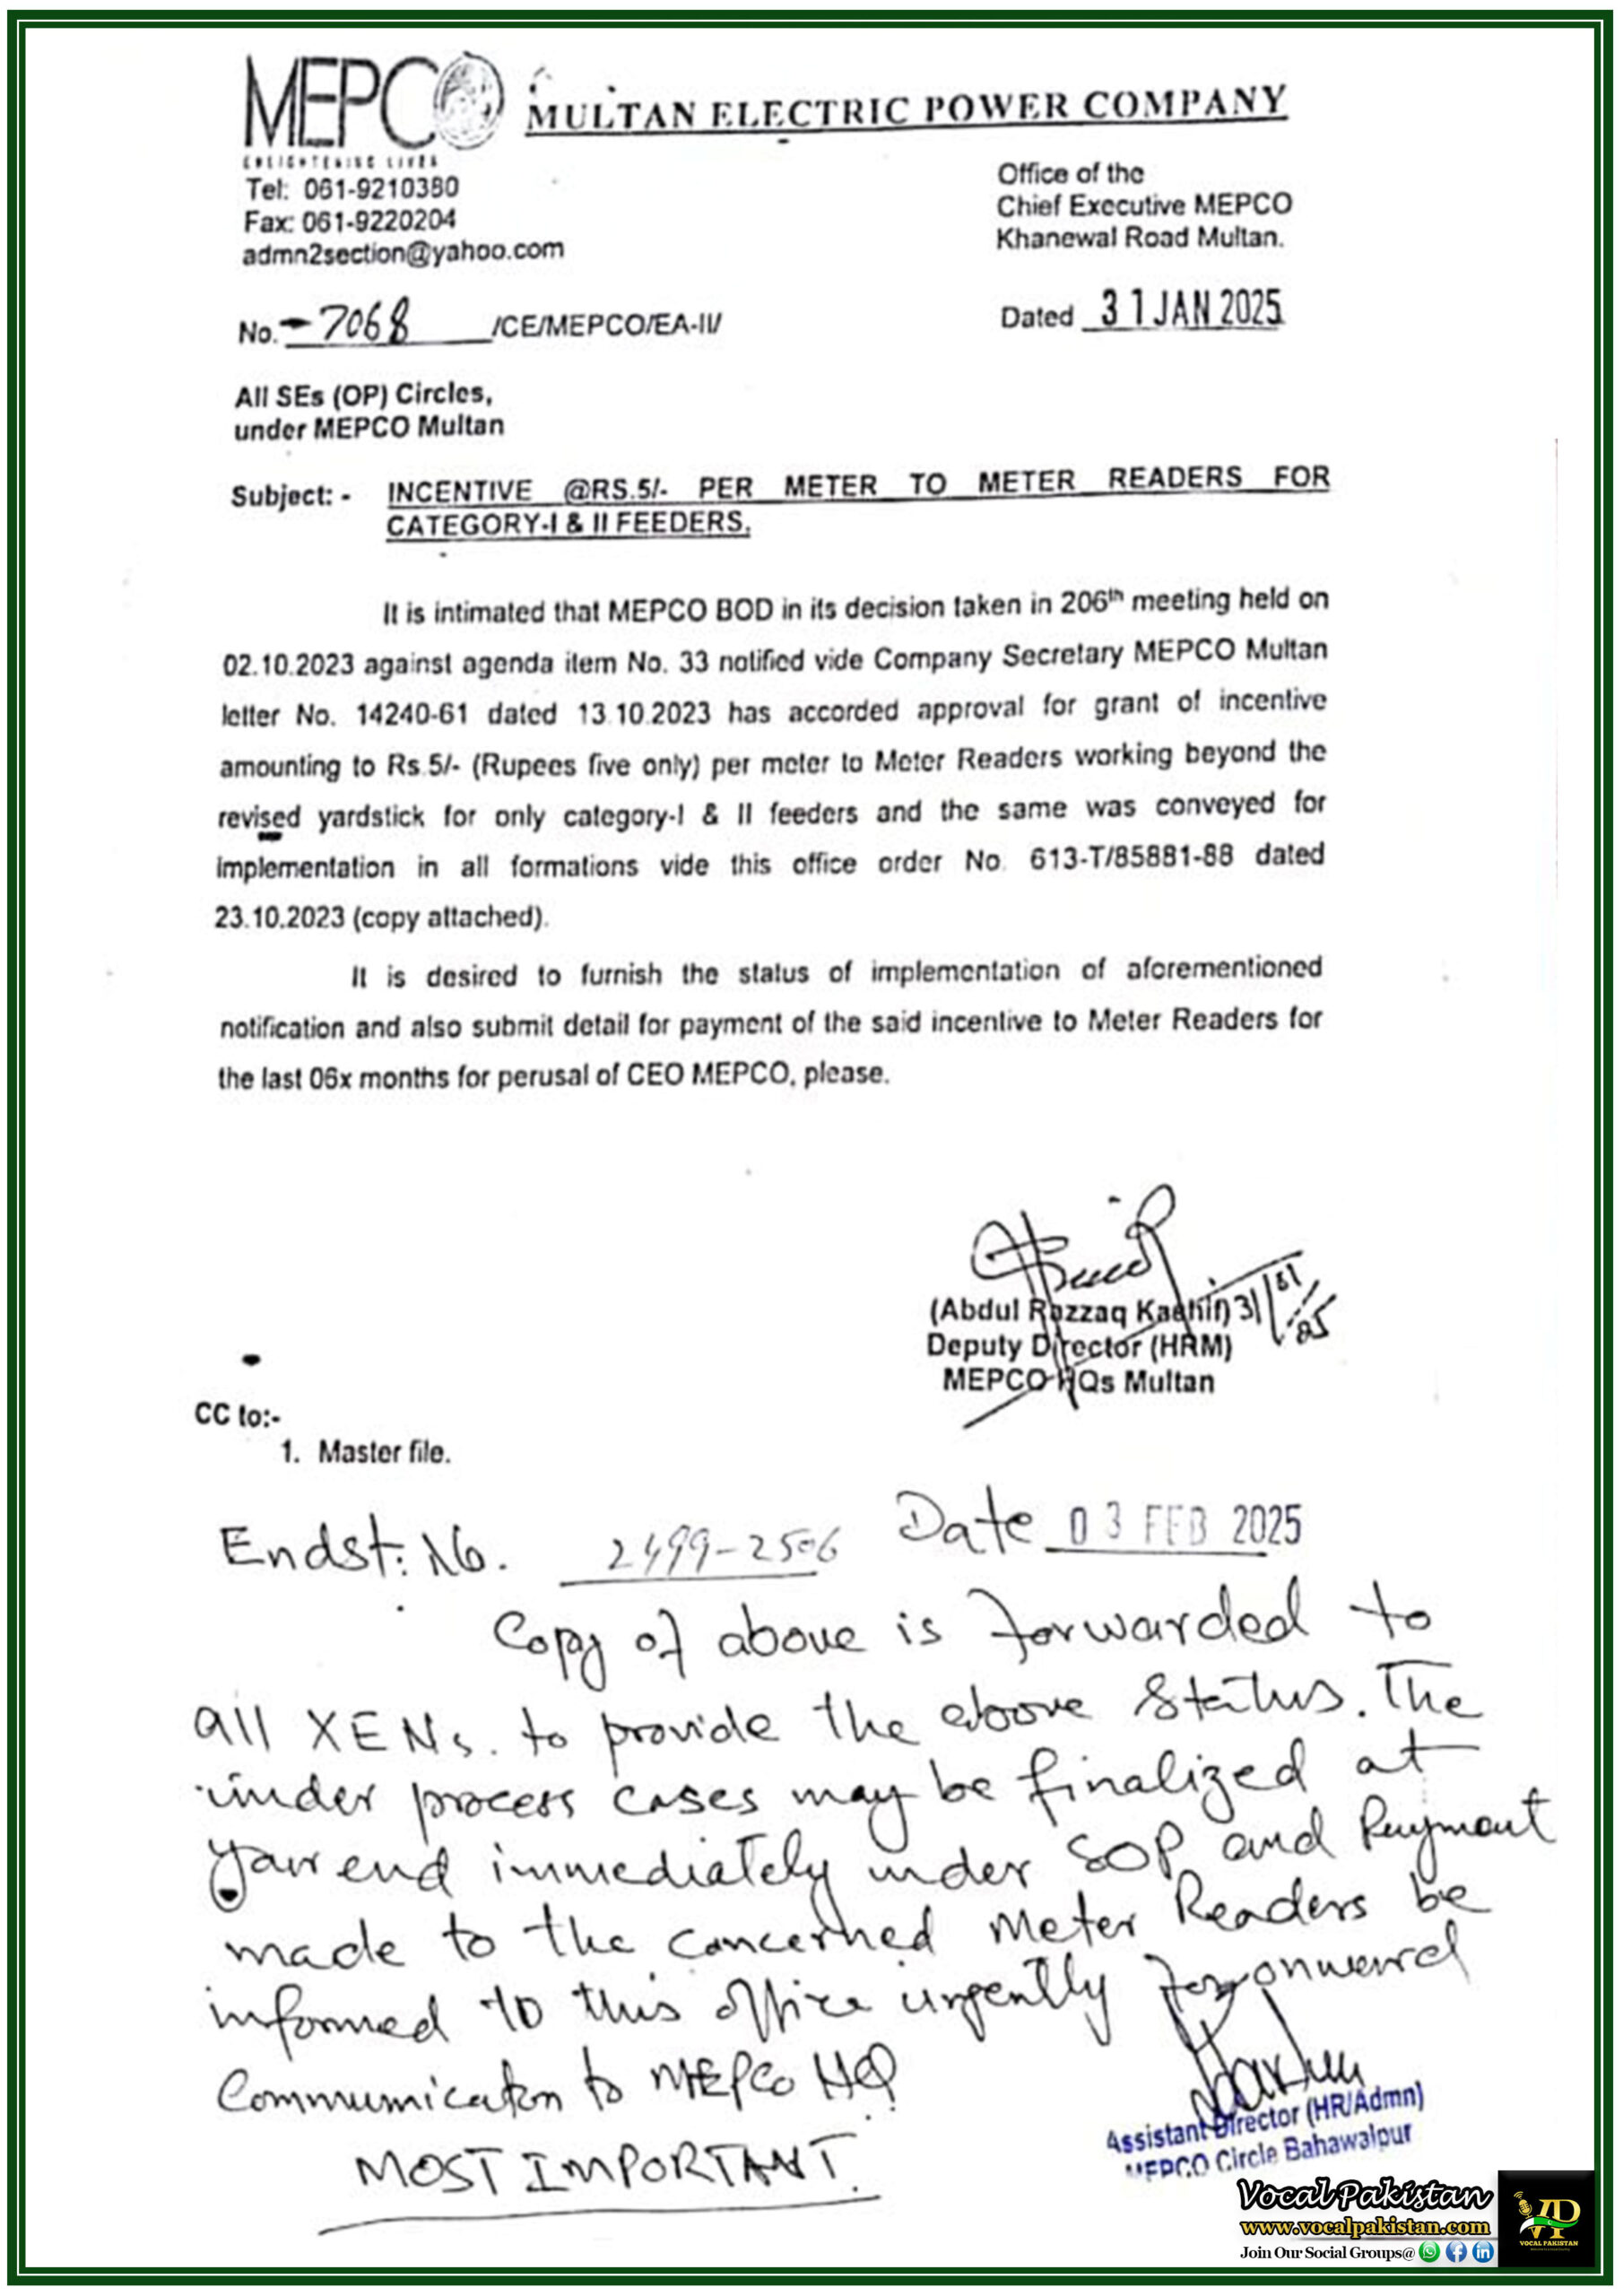 MEPCO
ENLIGHTENING LIVES
MULTAN ELECTRIC POWER COMPANY
Tel: 061-9210380
Fax: 061-9220204
admn2section@yahoo.com
Office of the
Chief Executive MEPCO
Khanewal Road Multan.
No. 7068 /CE/MEPCO/EA-II/
Dated 31 JAN 2025
All SEs (OP) Circles,
under MEPCO Multan
Subject: - INCENTIVE @RS.5/- PER METER TO METER READERS FOR
CATEGORY-I & II FEEDERS.
It is intimated that MEPCO BOD in its decision taken in 206th meeting held on
02.10.2023 against agenda item No. 33 notified vide Company Secretary MEPCO Multan
letter No. 14240-61 dated 13.10.2023 has accorded approval for grant of incentive
amounting to Rs.5/- (Rupees five only) per meter to Meter Readers working beyond the
revised yardstick for only category-I & II feeders and the same was conveyed for
implementation in all formations vide this office order No. 613-T/85881-88 dated
23.10.2023 (copy attached).
It is desired to furnish the status of implementation of aforementioned
notification and also submit detail for payment of the said incentive to Meter Readers for
the last 06x months for perusal of CEO MEPCO, please.
(Abdul Razzaq Kashif) 31/01/25
Deputy Director (HRM)
MEPCO HQs Multan
CC to:-
1. Master file.
Endst: No. 2499-2506 Date 03 FEB 2025
Copy of above is forwarded to
all XENs. to provide the above status. The
under process cases may be finalized at
your end immediately under SOP and Payment
made to the concerned Meter Readers be
informed to this office urgently for onward
Communication to MEPCO HQ.
MOST IMPORTANT.
Assistant Director (HR/Admn)
MEPCO Circle Bahawalpur
Vocal Pakistan
www.vocalpakistan.com
Join Our Social Groups@
VP
VOCAL PAKISTAN